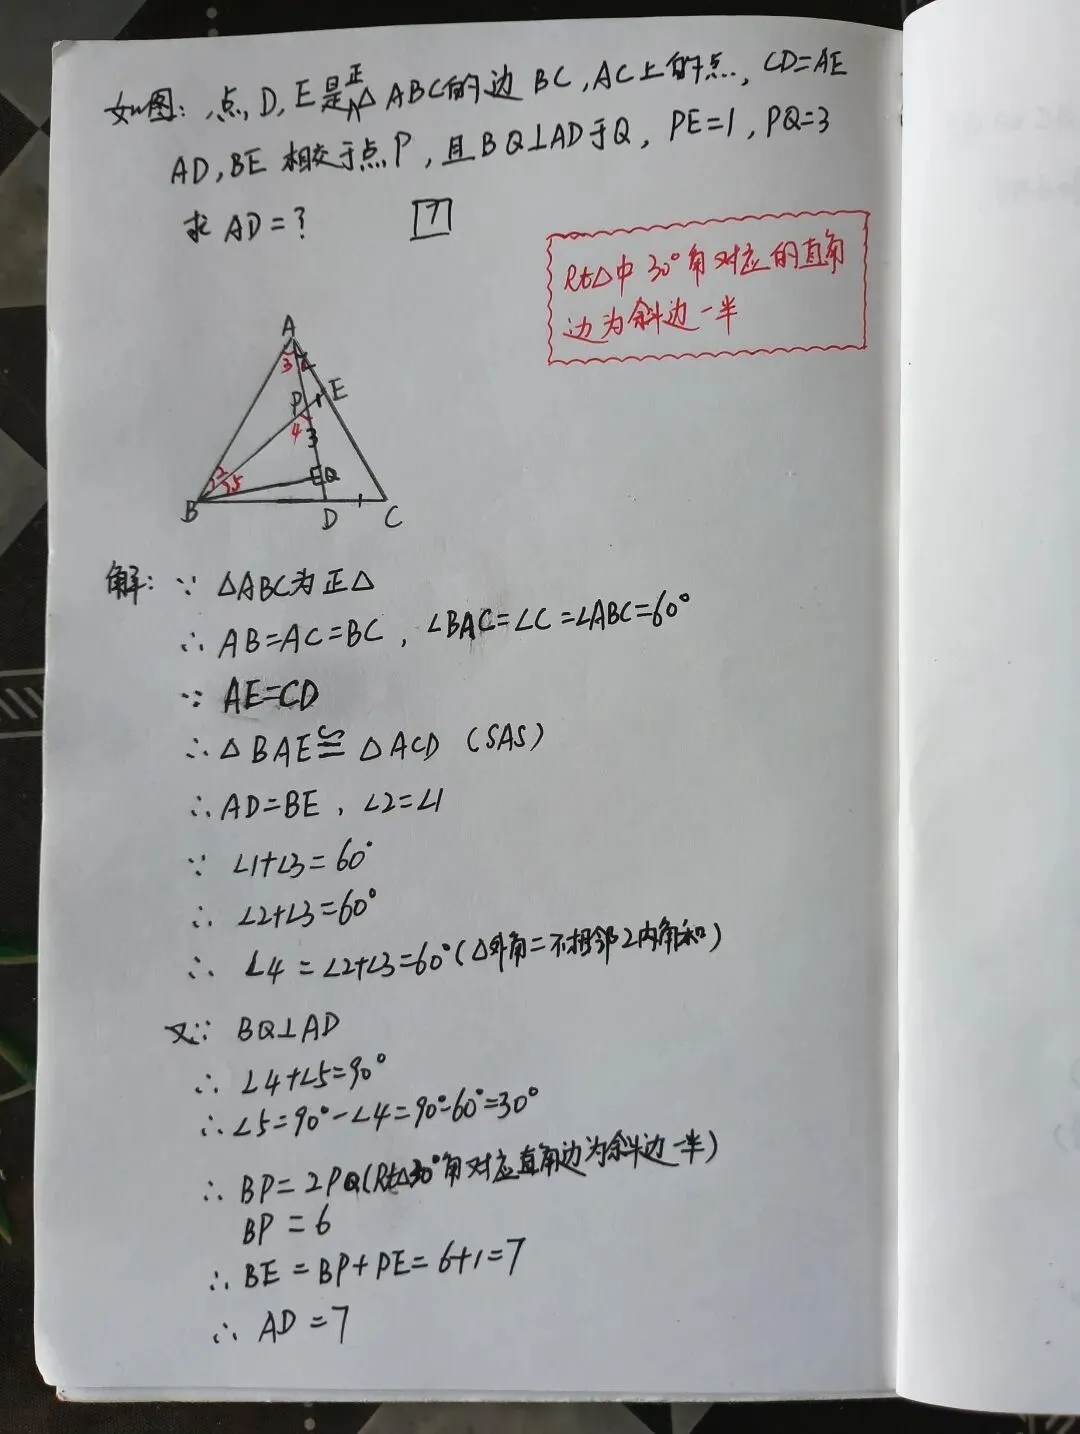 如图：点D,E是正△ABC的边BC,AC上的点,CD=AE
AD,BE相交于点P,且BQ⊥AD于Q,PE=1,PQ=3
求AD=? 7
Rt△中30°角对应的直角
边为斜边一半
A
3 1
P 1 E
4 3
2 5 Q
B D C
解: ∵ △ABC为正△
∴ AB=AC=BC, ∠BAC=∠C=∠ABC=60°
∵ AE=CD
∴ △BAE≌△ACD (SAS)
∴ AD=BE, ∠2=∠1
∵ ∠1+∠3=60°
∴ ∠2+∠3=60°
∴ ∠4=∠2+∠3=60°(△外角=不相邻2内角和)
又∵ BQ⊥AD
∴ ∠4+∠5=90°
∴ ∠5=90°-∠4=90°-60°=30°
∴ BP=2PQ(Rt△30°角对应直角边为斜边一半)
BP=6
∴ BE=BP+PE=6+1=7
∴ AD=7